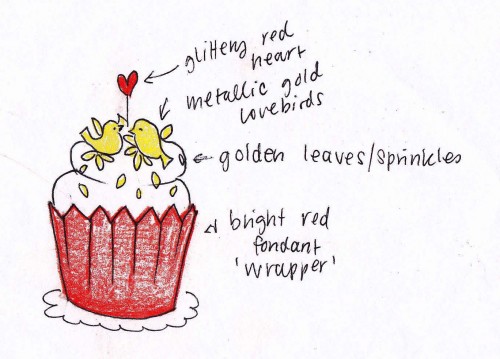 glittery red
heart
metallic gold
lovebirds
golden leaves/sprinkles
bright red
fondant
'wrapper'